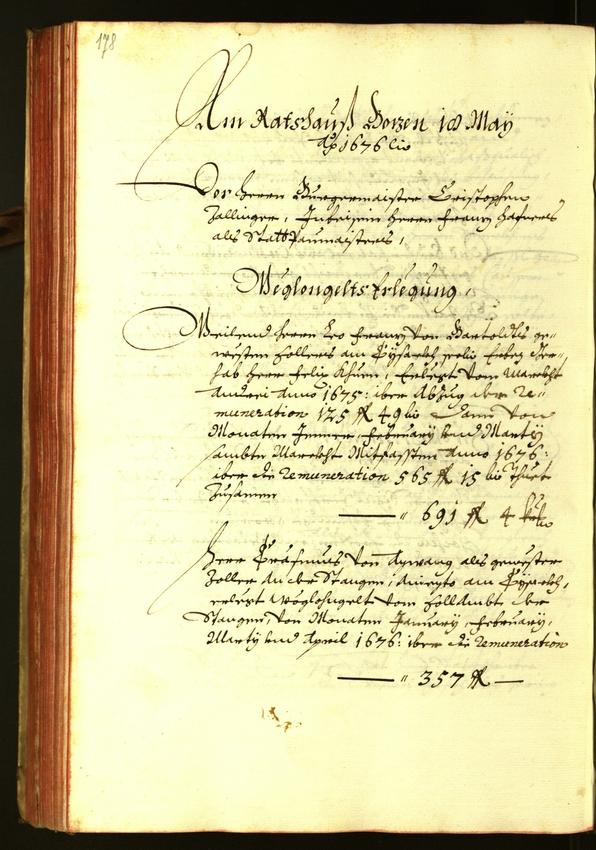 178
Am Rathauß Botzen 18 May
Ao 1676
Vor Herrn Burgermaister Cristophen
Zallinger, Inbeisein Herrn Franz Hafners
als Stattpaumaisters,
Weglongelts Erlegung,
Weilend Herrn Leo Franz von Bartoldts ge-
westen Zollers am Eysackh seelig Erben Ger-
hab Herr Felix Khuen, Erlegt vom Marckht
Andrei Anno 1675: iber Abzug der Re-
muneration 125 fl 49 Dann von
Monaten Jenner, February und Marty
sambt Marckht Mitfassten Anno 1676:
iber die Remuneration 565 fl 15 Thuet
Zusamen
691 fl 4
Herr Erasmus von Aÿwang als gewester
Zoller an der Stangen, anieyto am Eysackh,
erlegt Weglohngelt vom Zollambt der
Stangen, von Monaten January, February,
Marty und April 1676: iber die Remuneration
357 fl